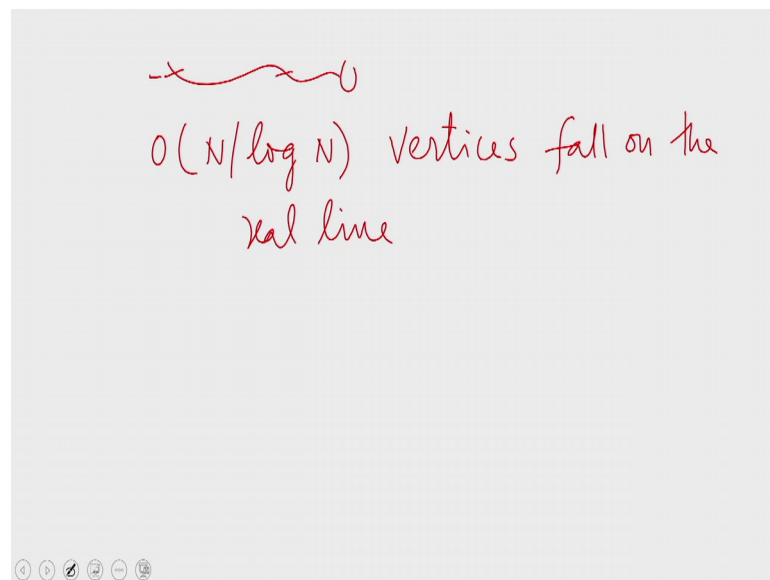 O(N/log N) vertices fall on the
real line